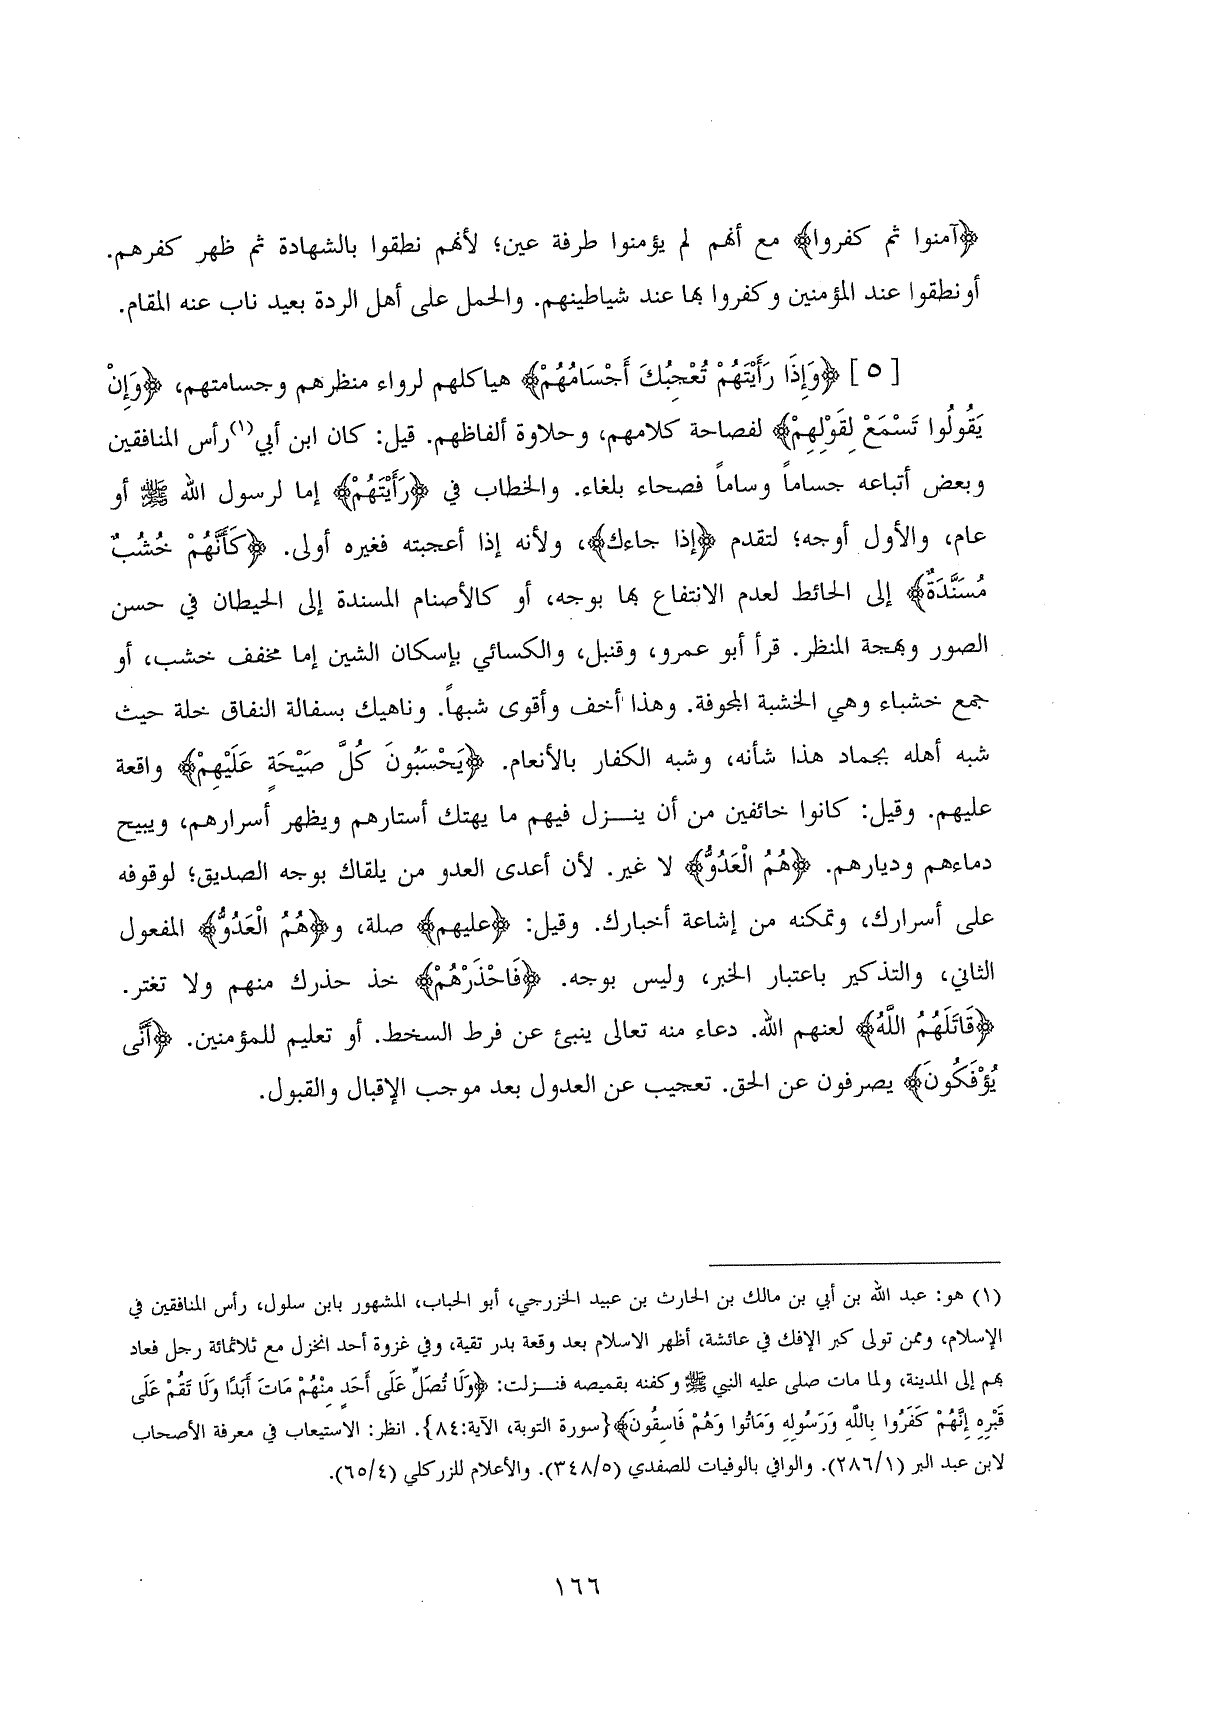 ﴿آمنوا ثم كفروا﴾ مع أنهم لم يؤمنوا طرفة عين؛ لأنهم نطقوا بالشهادة ثم ظهر كفرهم.
أو نطقوا عند المؤمنين وكفروا بها عند شياطينهم. والحمل على أهل الردة بعيد ناب عنه المقام.
[٥] ﴿وَإِذَا رَأَيْتَهُمْ تُعْجِبُكَ أَجْسَامُهُمْ﴾ هياكلهم لرواء منظرهم وجسامتهم، ﴿وَإِنْ
يَقُولُوا تَسْمَعْ لِقَوْلِهِمْ﴾ لفصاحة كلامهم، وحلاوة ألفاظهم. قيل: كان ابن أبي(١) رأس المنافقين
وبعض أتباعه جساماً وساماً فصحاء بلغاء. والخطاب في ﴿رَأَيْتَهُمْ﴾ إما لرسول الله ﷺ أو
عام، والأول أوجه؛ لتقدم ﴿إذا جاءك﴾، ولأنه إذا أعجبته فغيره أولى. ﴿كَأَنَّهُمْ خُشُبٌ
مُسَنَّدَةٌ﴾ إلى الحائط لعدم الانتفاع بها بوجه، أو كالأصنام المسندة إلى الحيطان في حسن
الصور وبهجة المنظر. قرأ أبو عمرو، وقنبل، والكسائي بإسكان الشين إما مخفف خشب، أو
جمع خشباء وهي الخشبة المجوفة. وهذا أخف وأقوى شبهاً. وناهيك بسفالة النفاق خلة حيث
شبه أهله بجماد هذا شأنه، وشبه الكفار بالأنعام. ﴿يَحْسَبُونَ كُلَّ صَيْحَةٍ عَلَيْهِمْ﴾ واقعة
عليهم. وقيل: كانوا خائفين من أن ينـــزل فيهم ما يهتك أستارهم ويظهر أسرارهم، ويبيح
دماءهم وديارهم. ﴿هُمُ الْعَدُوُّ﴾ لا غير. لأن أعدى العدو من يلقاك بوجه الصديق؛ لوقوفه
على أسرارك، وتمكنه من إشاعة أخبارك. وقيل: ﴿عليهم﴾ صلة، و﴿هُمُ الْعَدُوُّ﴾ المفعول
الثاني، والتذكير باعتبار الخبر، وليس بوجه. ﴿فَاحْذَرْهُمْ﴾ خذ حذرك منهم ولا تغتر.
﴿قَاتَلَهُمُ اللَّهُ﴾ لعنهم الله. دعاء منه تعالى ينبئ عن فرط السخط. أو تعليم للمؤمنين. ﴿أَنَّى
يُؤْفَكُونَ﴾ يصرفون عن الحق. تعجيب عن العدول بعد موجب الإقبال والقبول.
(١) هو: عبد الله بن أبي بن مالك بن الحارث بن عبيد الخزرجي، أبو الحباب، المشهور بابن سلول، رأس المنافقين في
الإسلام، وممن تولى كبر الإفك في عائشة، أظهر الاسلام بعد وقعة بدر تقية، وفي غزوة أحد انخزل مع ثلاثمائة رجل فعاد
بهم إلى المدينة، ولما مات صلى عليه النبي ﷺ وكفنه بقميصه فنـــزلت: ﴿وَلَا تُصَلِّ عَلَى أَحَدٍ مِنْهُمْ مَاتَ أَبَدًا وَلَا تَقُمْ عَلَى
قَبْرِهِ إِنَّهُمْ كَفَرُوا بِاللَّهِ وَرَسُولِهِ وَمَاتُوا وَهُمْ فَاسِقُونَ﴾{سورة التوبة، الآية:٨٤}. انظر: الاستيعاب في معرفة الأصحاب
لابن عبد البر (٢٨٦/١). والوافي بالوفيات للصفدي (٣٤٨/٥). والأعلام للزركلي (٦٥/٤).
١٦٦